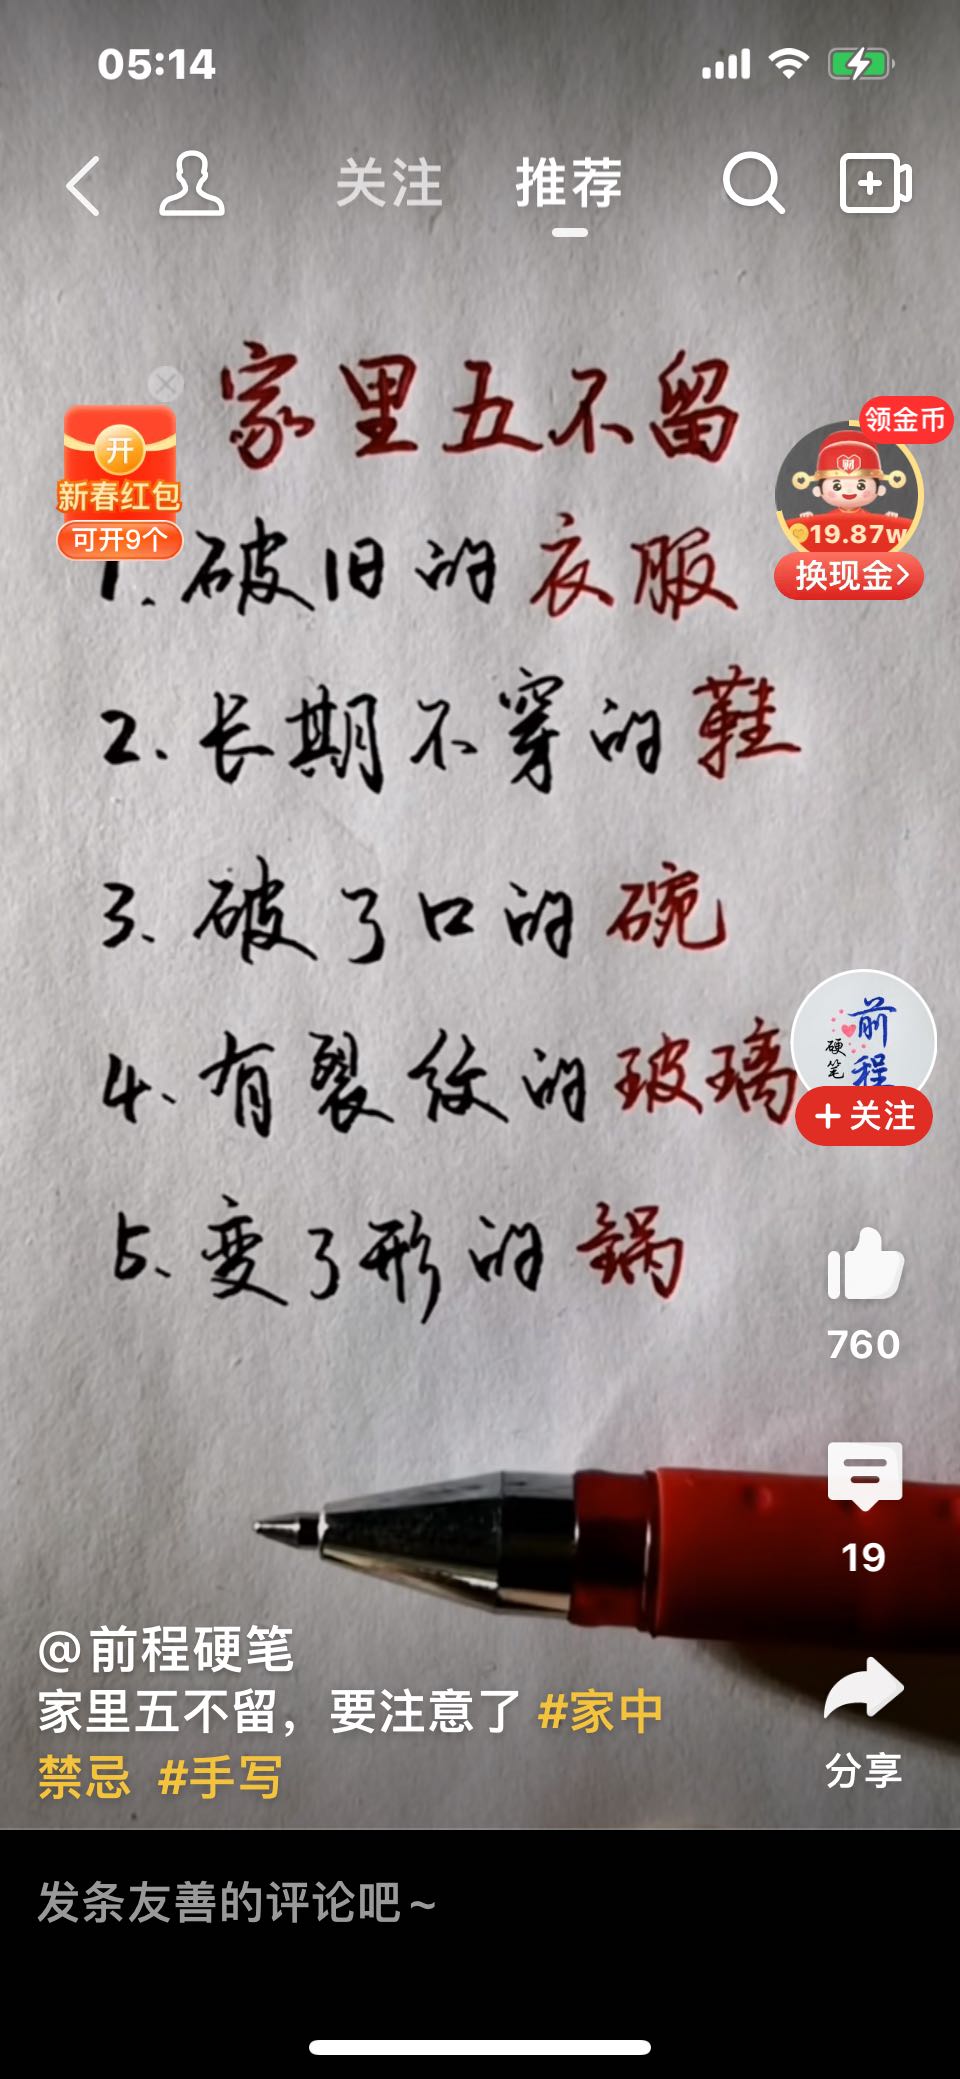 05:14
关注 推荐
领金币
家里五不留
开
新春红包
可开9个
财
19.87w
换现金
1.破旧的衣服
2.长期不穿的鞋
3.破了口的碗
4.有裂纹的玻璃
5.变了形的锅
前程
硬笔
+关注
760
19
分享
@前程硬笔
家里五不留，要注意了 #家中
禁忌 #手写
发条友善的评论吧~